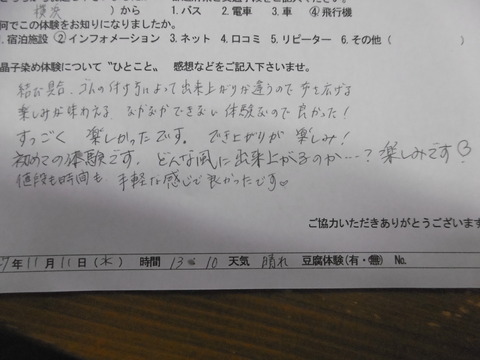 横浜 )から 1.バス 2.電車 3.車 ④飛行機
何でこの体験をお知りになりましたか。
1.宿泊施設 ②インフォメーション 3.ネット 4.口コミ 5.リピーター 6.その他( )
晶子染め体験について"ひとこと" 感想などをご記入下さいませ。
結ぶ具合、ゴムの付け方によって出来上がりが違うので
楽しみが味わえる、なかなかできない体験なので良かった!
すっごく 楽しかったです。 でき上がりが 楽しみ!
初めての体験です。どんな風に出来上がるのか…?楽しみです
値段も時間も 手軽な感じで良かったです
ご協力いただきありがとうございます
7年 11月 11日(水) 時間 13 10 天気 晴れ 豆腐体験(有・無) No.